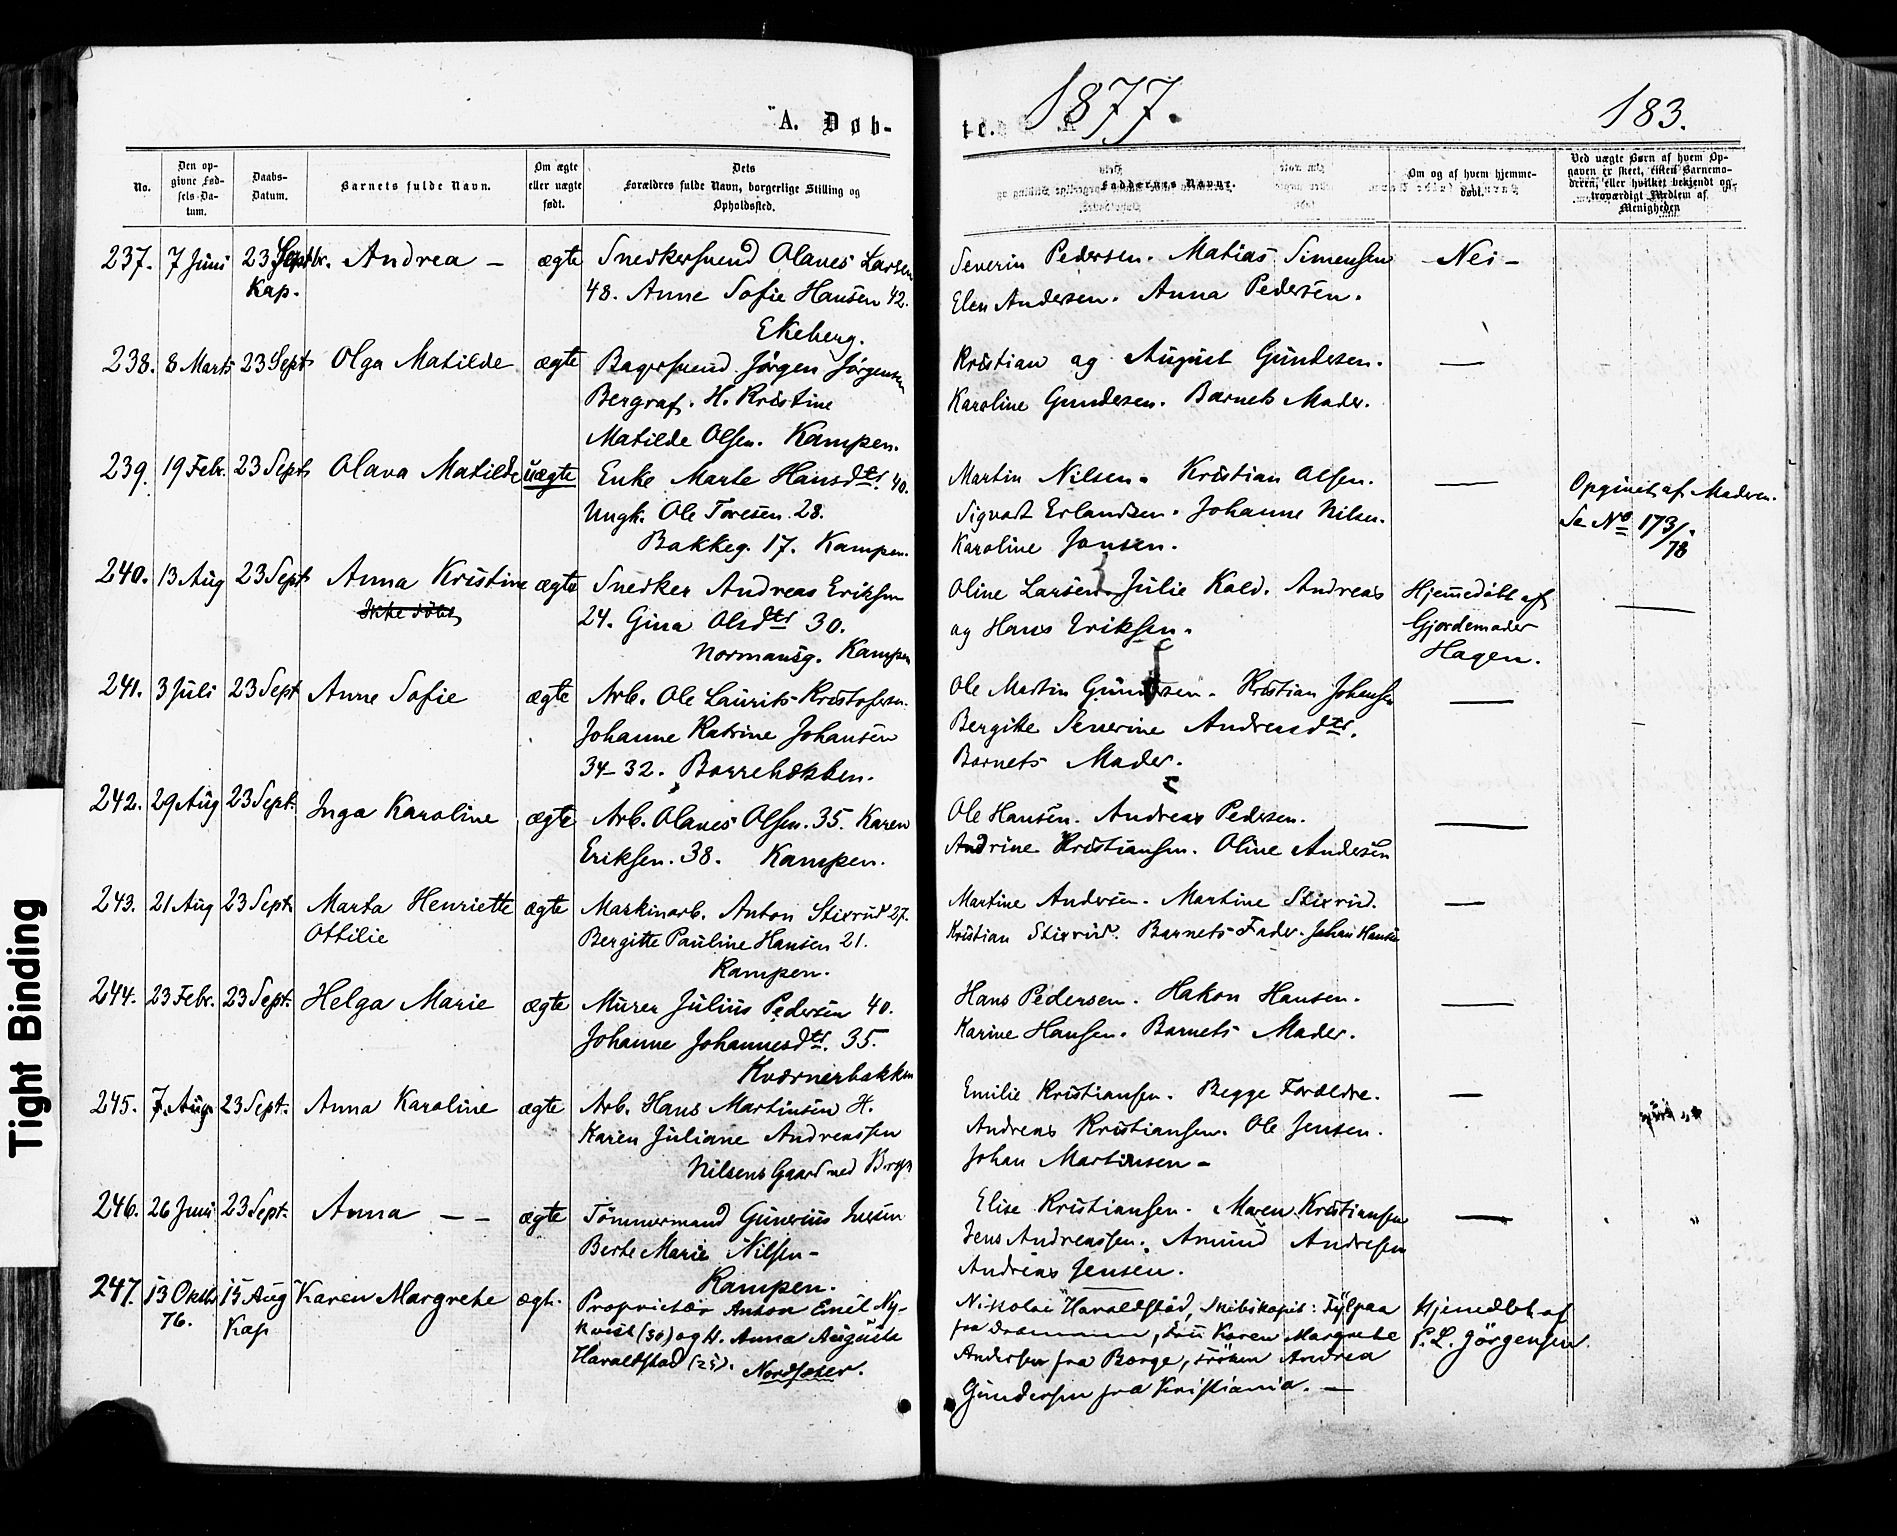 1877.
183.
A. Døb-
te.
No.
Den op-
givne Fød-
sels-Da-
tum.
Daabs-
Datum.
Barnets fulde Navn.
Om ægte
eller uægte
født.
Dets
Forældres fulde Navn, borgerlige Stilling og
Opholdssted.
Faddernes Navne.
Om og af hvem hjemme-
døbt.
Ved uægte Børn af hvem Op-
gaven er skeet, enten Barnemo-
deren, eller hvilket bekjendt og
troværdigt Medlem af
Menigheden
237. 7 Juni 23 Septbr. Andrea – ægte Snedkersvend Olaves Larsen Severin Pedersen. Matias Simensen – Nei –
Kap. 48. Anne Sofie Hansen 42. Elen Andersen. Anna Pedersen.
Ekeberg.
238. 8 Marts 23 Sept Olga Matilde ægte Bagersvend Jørgen Jørgensen Kristian og August Gundesen. —
Bergraf. H. Kristine Karoline Gundesen. Barnets Moder.
Matilde Olsen. Kampen.
239. 19 Febr. 23 Sept Olava Matilde uægte Enke Marte Hansdtr. 40. Martin Nilsen. Kristian Olsen. — Opgivet af Moderen.
Ungk. Ole Toresen 28. Sigvart Erlandsen. Johanne Nilsen. Se No 173/78
Bakkeg. 17. Kampen. Karoline Jansen.
240. 13 Aug 23 Sept Anna Kristine ægte Snedker Andreas Eriksen Oline Larsen. Julie Kold. Andreas Hjemmedøbt af —
Ikke døbt 24. Gina Olsdtr 30. og Hans Eriksen. Gjordemoder
Normansg. Kampen Hagen.
241. 3 Juli 23 Sept Anne Sofie ægte Arb. Ole Laurits Kristofersen. Ole Martin Gundesen. Kristian Johansen —
Johanne Katrine Johansen Bergitte Severine Andreasdtr.
34–32. Borrebækken. Barnets Moder.
242. 29 Aug 23 Sept. Inga Karoline ægte Arb. Olaves Olsen. 35. Karen Ole Hansen. Andreas Pedersen. —
Eriksen. 38. Kampen. Andrine Kristiansen. Oline Andersen
243. 21 Aug 23 Sept. Marta Henriette ægte Maskinarb. Anton Stixrud 27. Martine Andersen. Martine Stixrud. —
Ottilie Bergitte Pauline Hansen 21. Kristian Stixrud. Barnets Fader. Johan Hansen
Kampen.
244. 23 Febr. 23 Sept. Helga Marie ægte Murer Julius Pedersen 40. Hans Pedersen. Hakon Hansen. —
Johanne Johannesdtr. 35. Karine Hansen. Barnets Moder.
Kværnerbakken
245. 7 Aug. 23 Sept. Anna Karoline ægte Arb. Hans Martinsen H. Emilie Kristiansen. Begge Forældre. —
Karen Juliane Andreassen Andreas Kristiansen. Ole Jensen.
Nilsens Gaard ved Johan Martinsen –
246. 26 Juni 23 Sept. Anna – – ægte Tömmermand Gunerius Iversen Elise Kristiansen. Maren Kristiansen —
Berte Marie Nilsen – Jens Andreassen. Amund Andresen
Kampen. Andreas Jensen.
247. 13 Oktbr 15 Aug Karen Margrethe ægt. Proprietær Anton Emil Ny- Nikolai Haraldstad, Skibskapit: Hjemedbt af
76. Kap kvist (30) og H. Anna Auguste fra Drammen, Karen Margrethe P. L. Jörgensen.
Haraldstad (25). Nordseter. Andersen fra Borge, fröken Andrea
Gundersen fra Kristiania. —
Tight Binding